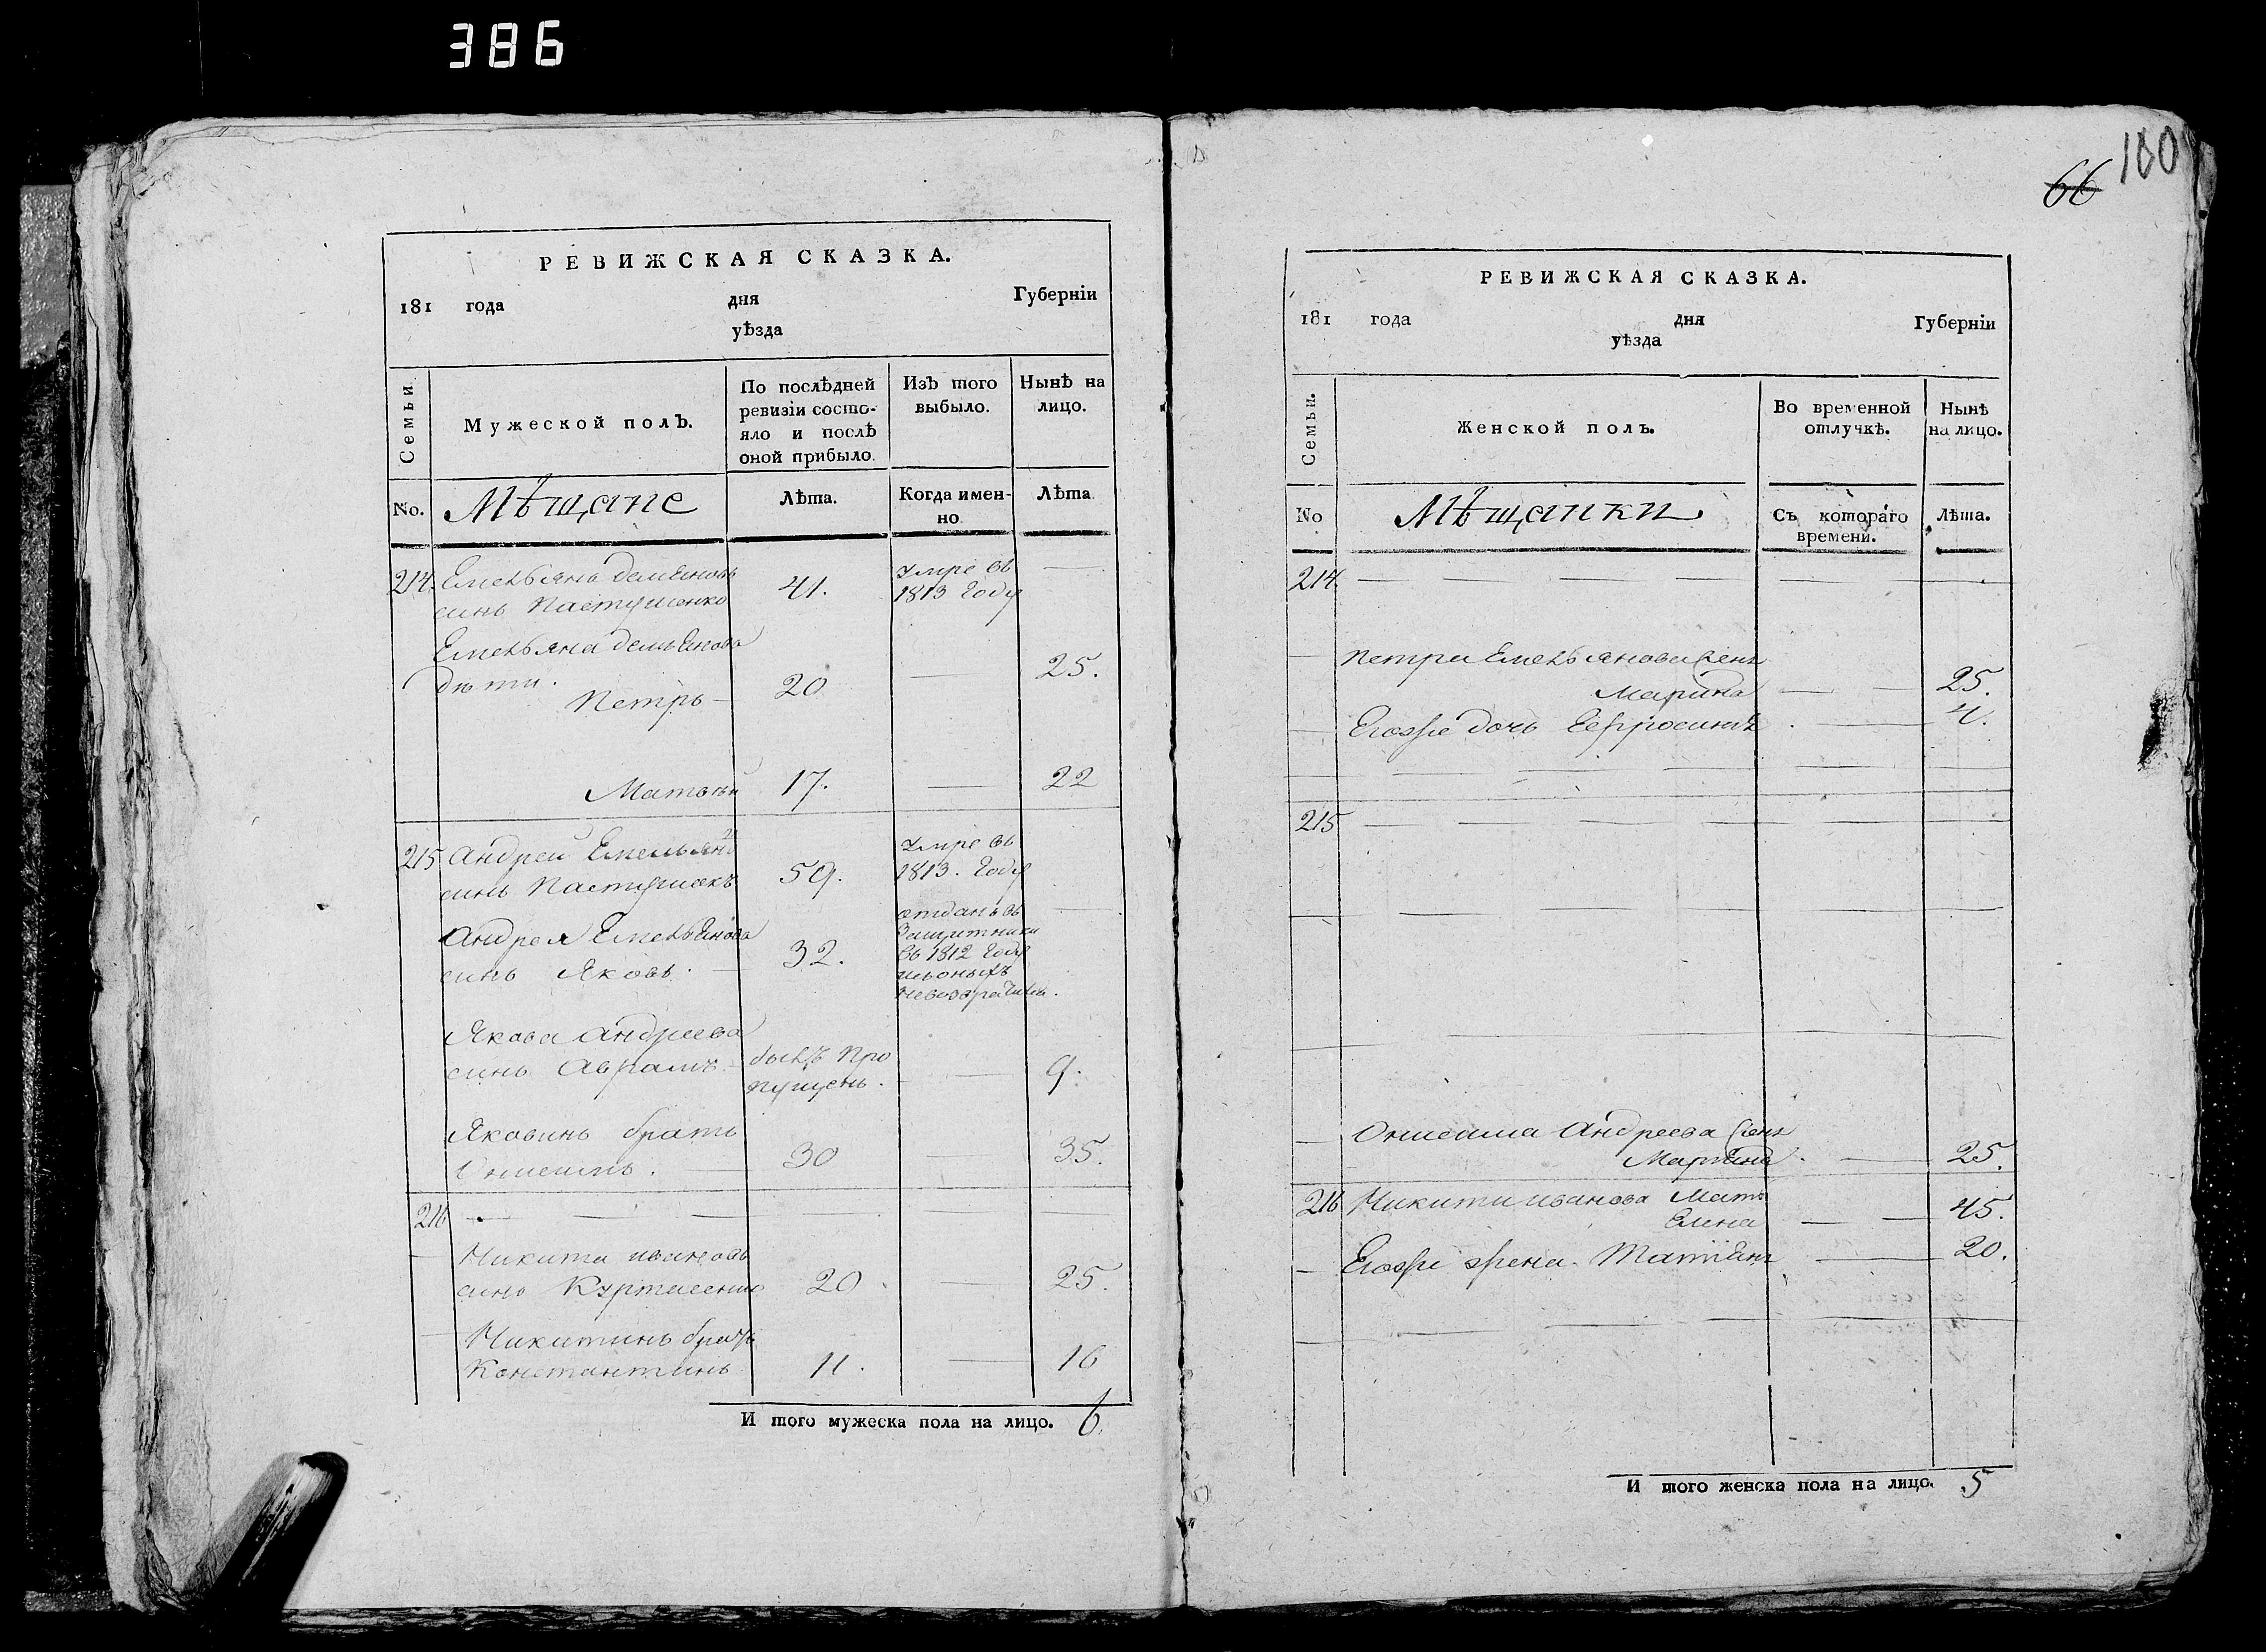 386
РЕВИЖСКАЯ СКАЗКА.
181 года дня Губерніи
уѣзда
Семьи
Мужеской полъ.
По послѣдней ревизіи состо-
яло и послѣ оной прибыло.
Изъ того выбыло.
Нынѣ на лицо.
No.
Мѣщане
Лѣта.
Когда имен-
но.
Лѣта
214. Емельянъ демяновъ
синъ Пастушенко 41. умре въ 1813 Году —
Емельяна демянова
дѣти.
Петръ — 20 — 25.
Матвѣй 17. — 22
215 Андрей Емельянъ
синъ Пастушокъ 59. умре въ 1813. Году
Андрея Емельянова
синъ Яковъ. — 32. отданъ въ — 
въ 1812 Году
Якова Андреева
синъ Аврамъ — былъ про
пущенъ. — 9.
Яковинъ братъ
Онисимъ. — 30 — 35.
216 — — — — — —
Никита ивановъ
синъ 20. — 25.
Никитинъ братъ
Константинъ 11. — 16
И того мужеска пола на лицо. 6.
66 180
РЕВИЖСКАЯ СКАЗКА.
181 года дня Губерніи
уѣзда
Семьи.
Женской полъ.
Во временной отлучкѣ.
Нынѣ на лицо.
No
Мѣщанки
Съ котораго времени.
Лѣта.
214. — — — — — —
— Петра Емельянова жена
Марина — — 25.
— Егоже дочь Ефросиния — 4.
215 — — — — — —
— Онисима Андреева жена
— 25.
216 Никити иванова Мать
Елена — — 45.
— Егоже жена Татіана — — 20.
И того женска пола на лицо. 5